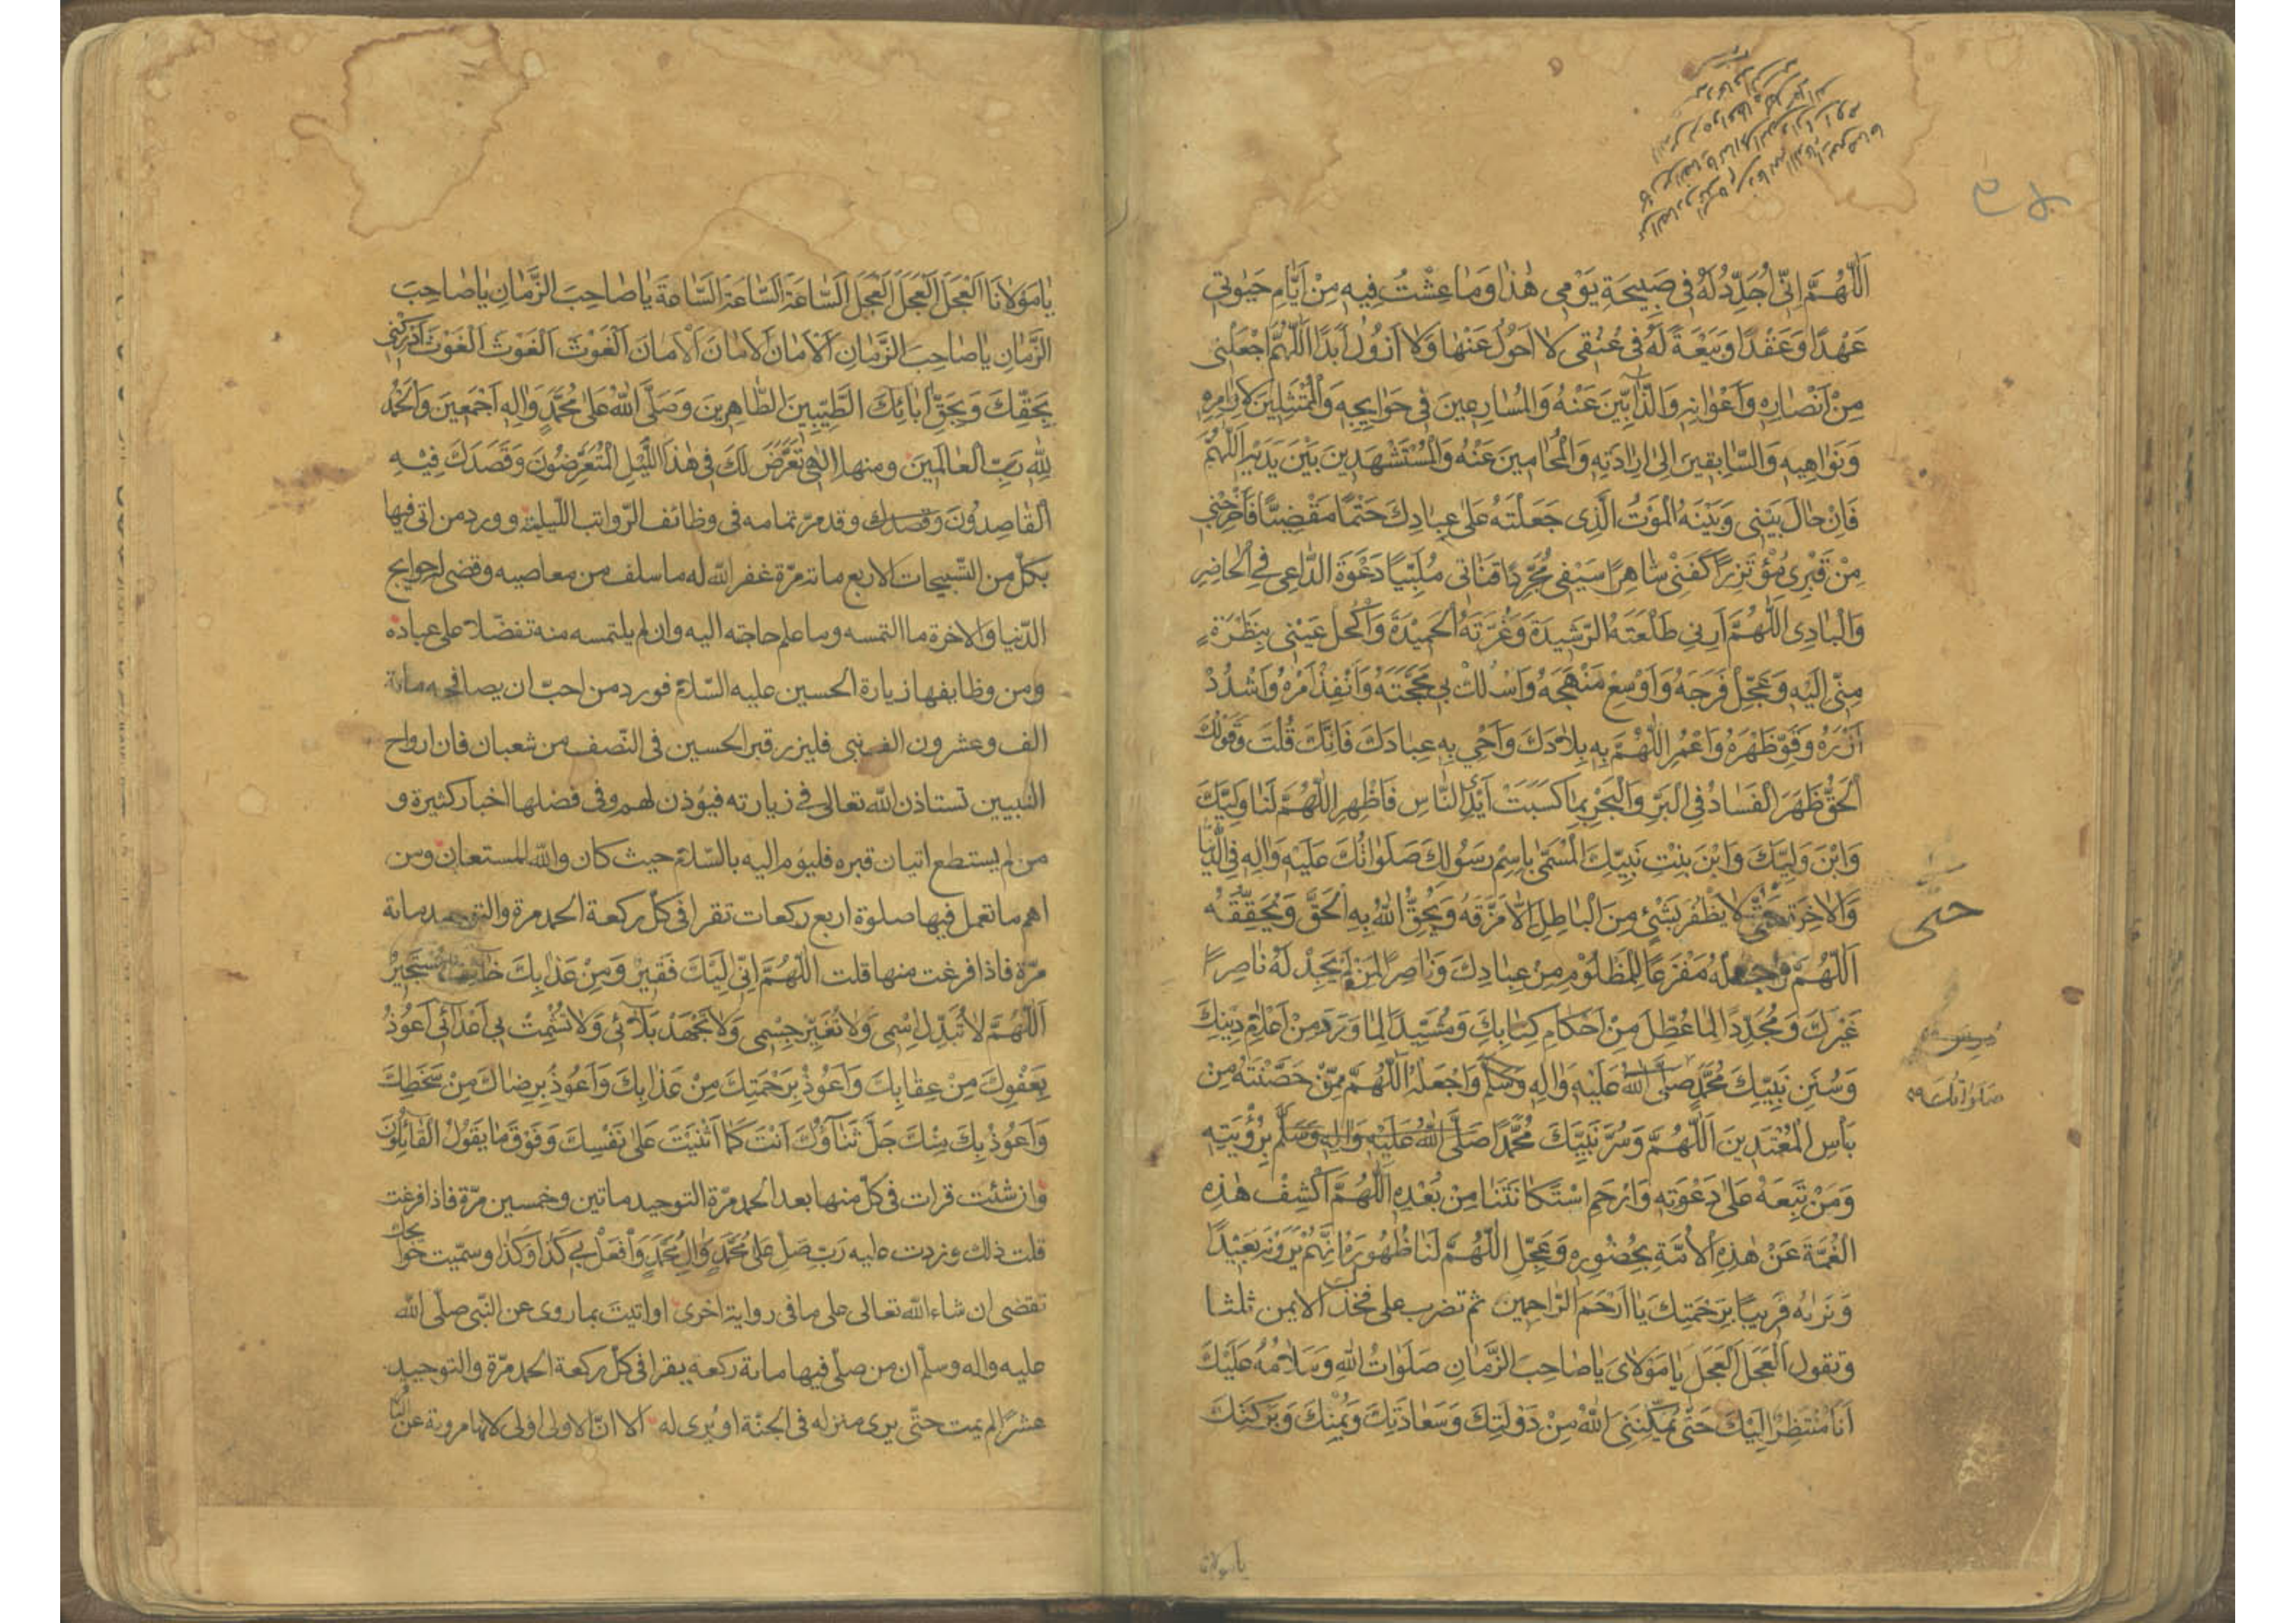 اَللّٰهُمَّ اِنّى اُجَدِّدُ لَهُ فى صَبيحَةِ يَوْمى هٰذا وَمٰا عِشْتُ فيهِ مِنْ اَيّٰامِ حَيٰوتى
عَهْدًا وَعَقْدًا وَبَيْعَةً لَهُ فى عُنُقى لا اَحُولُ عَنْهٰا وَلا اَزُولُ اَبَدًا اَللّٰهُمَّ اجْعَلْنى
مِنْ اَنْصٰارِهِ وَاَعْوٰانِهِ وَالذّٰابّينَ عَنْهُ وَالْمُسٰارِعينَ فى حَوٰايِجِهِ وَالْمُمْتَثِلينَ لِاَوٰامِرِهِ
وَنَوٰاهيهِ وَالسّٰابِقينَ اِلىٰ اِرٰادَتِهِ وَالْمُحٰامينَ عَنْهُ وَالْمُسْتَشْهَدينَ بَيْنَ يَدَيْهِ اَللّٰهُمَّ
فَاِنْ حٰالَ بَيْنى وَبَيْنَهُ الْمَوْتُ الَّذى جَعَلْتَهُ عَلىٰ عِبٰادِكَ حَتْمًا مَقْضِيًّا فَاَخْرِجْنى
مِنْ قَبْرى مُؤْتَزِرًا كَفَنى شٰاهِرًا سَيْفى مُجَرِّدًا قَنٰاتى مُلَبِّيًا دَعْوَةَ الدّٰاعى فِى الْحٰاضِرِ
وَالْبٰادى اَللّٰهُمَّ اَرِنى طَلْعَتَهُ الرَّشيدَةَ وَغُرَّتَهُ الْحَميدَةَ وَاكْحُلْ عَيْنى بِنَظْرَةٍ
مِنّى اِلَيْهِ وَعَجِّلْ فَرَجَهُ وَاَوْسِعْ مَنْهَجَهُ وَاسْلُكْ بى مَحَجَّتَهُ وَاَنْفِذْ اَمْرَهُ وَاشْدُدْ
اَزْرَهُ وَقَوِّ ظَهْرَهُ وَاعْمُرِ اللّٰهُمَّ بِهِ بِلٰادَكَ وَاَحْىِ بِهِ عِبٰادَكَ فَاِنَّكَ قُلْتَ وَقَوْلُكَ
الْحَقُّ ظَهَرَ الْفَسٰادُ فِى الْبَرِّ وَالْبَحْرِ بِمٰا كَسَبَتْ اَيْدِى النّٰاسِ فَاَظْهِرِ اللّٰهُمَّ لَنٰا وَلِيَّكَ
وَابْنَ وَلِيِّكَ وَابْنَ بِنْتِ نَبِيِّكَ الْمُسَمّىٰ بِاسْمِ رَسُولِكَ صَلَوٰاتُكَ عَلَيْهِ وَاٰلِهِ فِى الدُّنْيٰا
وَالْاٰخِرَةِ حَتّىٰ لا يَظْفَرَ بِشَىْءٍ مِنَ الْبٰاطِلِ اِلّٰا مَزَّقَهُ وَيُحِقَّ اللّٰهُ بِهِ الْحَقَّ وَيُحَقِّقَهُ
حتى
اَللّٰهُمَّ وَاجْعَلْهُ مَفْزَعًا لِلْمَظْلُومِ مِنْ عِبٰادِكَ وَنٰاصِرًا لِمَنْ لَمْ يَجِدْ لَهُ نٰاصِرًا
غَيْرَكَ وَمُجَدِّدًا لِمٰا عُطِّلَ مِنْ اَحْكٰامِ كِتٰابِكَ وَمُشَيِّدًا لِمٰا وَرَدَ مِنْ اَعْلٰامِ دينِكَ
وَسُنَنِ نَبِيِّكَ مُحَمَّدٍ صَلَّى اللّٰهُ عَلَيْهِ وَاٰلِهِ وَسَلَّمَ وَاجْعَلْهُ اَللّٰهُمَّ مِمَّنْ حَصَّنْتَهُ مِنْ
صلواتك
بَأْسِ الْمُعْتَدينَ اَللّٰهُمَّ وَسُرَّ نَبِيَّكَ مُحَمَّدًا صَلَّى اللّٰهُ عَلَيْهِ وَاٰلِهِ وَسَلَّمَ بِرُؤْيَتِهِ
وَمَنْ تَبِعَهُ عَلىٰ دَعْوَتِهِ وَارْحَمِ اسْتِكٰانَتَنٰا مِنْ بَعْدِهِ اَللّٰهُمَّ اكْشِفْ هٰذِهِ
الْغُمَّةَ عَنْ هٰذِهِ الْاُمَّةِ بِحُضُورِهِ وَعَجِّلِ اللّٰهُمَّ لَنٰا ظُهُورَهُ اِنَّهُمْ يَرَوْنَهُ بَعيدًا
وَنَرٰيهُ قَريبًا بِرَحْمَتِكَ يٰا اَرْحَمَ الرّٰاحِمينَ ثم تضرب على فخذك الايمن ثلثا
وتقول اَلْعَجَلَ اَلْعَجَلَ يٰا مَوْلاىَ يٰا صٰاحِبَ الزَّمٰانِ صَلَوٰاتُ اللّٰهِ وَسَلٰامُهُ عَلَيْكَ
اَنَا مُنْتَظِرٌ اِلَيْكَ حَتّىٰ يُمَكِّنَنِى اللّٰهُ مِنْ دَوْلَتِكَ وَسَعٰادَتِكَ وَيُمْنِكَ وَبَرَكَتِكَ
يا مولانا
يٰا مَوْلٰانَا اَلْعَجَلَ اَلْعَجَلَ اَلْعَجَلَ اَلسّٰاعَةَ اَلسّٰاعَةَ اَلسّٰاعَةَ يٰا صٰاحِبَ الزَّمٰانِ يٰا صٰاحِبَ
الزَّمٰانِ يٰا صٰاحِبَ الزَّمٰانِ اَلْاَمٰانَ اَلْاَمٰانَ اَلْاَمٰانَ اَلْغَوْثَ اَلْغَوْثَ اَلْغَوْثَ اَدْرِكْنى
بِحَقِّكَ وَبِحَقِّ اٰبٰائِكَ الطَّيِّبينَ الطّٰاهِرينَ وَصَلَّى اللّٰهُ عَلىٰ مُحَمَّدٍ وَاٰلِهِ اَجْمَعينَ وَالْحَمْدُ
لِلّٰهِ رَبِّ الْعٰالَمينَ ومنها اِلٰهى تَعَرَّضَ لَكَ فى هٰذَا اللَّيْلِ الْمُتَعَرِّضُونَ وَقَصَدَكَ فيهِ
الْقٰاصِدُونَ وقصدك وقد مرّ تمامه فى وظائف الرّواتب اللّيليّة وورد من اتى فيها
بكلّ من التّسبيحات الاربع مائة مرّة غفر اللّه له ما سلف من معاصيه وقضى له حوايج
الدّنيا والاخرة ما التمسه وما علم حاجته اليه وان لم يلتمسه منه تفضّلا على عباده
ومن وظايفها زيارة الحسين عليه السّلام فورد من احبّ ان يصافحه مائة
الف وعشرون الف نبى فليزر قبر الحسين فى النّصف من شعبان فان ارواح
النبيين تستاذن اللّه تعالى فى زيارته فيؤذن لهم وفى فضلها اخبار كثيرة و
من لم يستطع اتيان قبره فليؤم اليه بالسّلام حيث كان واللّه المستعان ومن
اهم ما تعمل فيها صلوة اربع ركعات تقرا فى كلّ ركعة الحمد مرة والتوحيد مائة
مرّة فاذا فرغت منها قلت اَللّٰهُمَّ اِنّى اِلَيْكَ فَقيرٌ وَمِنْ عَذٰابِكَ خٰائِفٌ مُسْتَجيرٌ
اَللّٰهُمَّ لا تُبَدِّلْ اِسْمى وَلا تُغَيِّرْ جِسْمى وَلا تَجْهَدْ بَلائى وَلا تُشْمِتْ بى اَعْدٰائى اَعُوذُ
بِعَفْوِكَ مِنْ عِقٰابِكَ وَاَعُوذُ بِرَحْمَتِكَ مِنْ عَذٰابِكَ وَاَعُوذُ بِرِضٰاكَ مِنْ سَخَطِكَ
وَاَعُوذُ بِكَ مِنْكَ جَلَّ ثَنٰاؤُكَ اَنْتَ كَمٰا اَثْنَيْتَ عَلىٰ نَفْسِكَ وَفَوْقَ مٰا يَقُولُ الْقٰائِلُونَ
وان شئت قرات فى كلّ منها بعد الحمد مرّة التوحيد ماتين وخمسين مرّة فاذا فرغت
قلت ذلك وزدت عليه رَبِّ صَلِّ عَلىٰ مُحَمَّدٍ وَاٰلِ مُحَمَّدٍ وَافْعَلْ بى كَذٰا وَكَذٰا وسمّيت حوايجك
تقضى ان شاء اللّه تعالى على ما فى رواية اخرى او اتيت بما روى عن النّبى صلّى اللّه
عليه واله وسلّم ان من صلّى فيها مائة ركعة يقرا فى كلّ ركعة الحمد مرّة والتوحيد
عشرًا لم يمت حتّى يرى منزله فى الجنّة او يُرى له الا انّ الاولى اولى لانها مروية عن